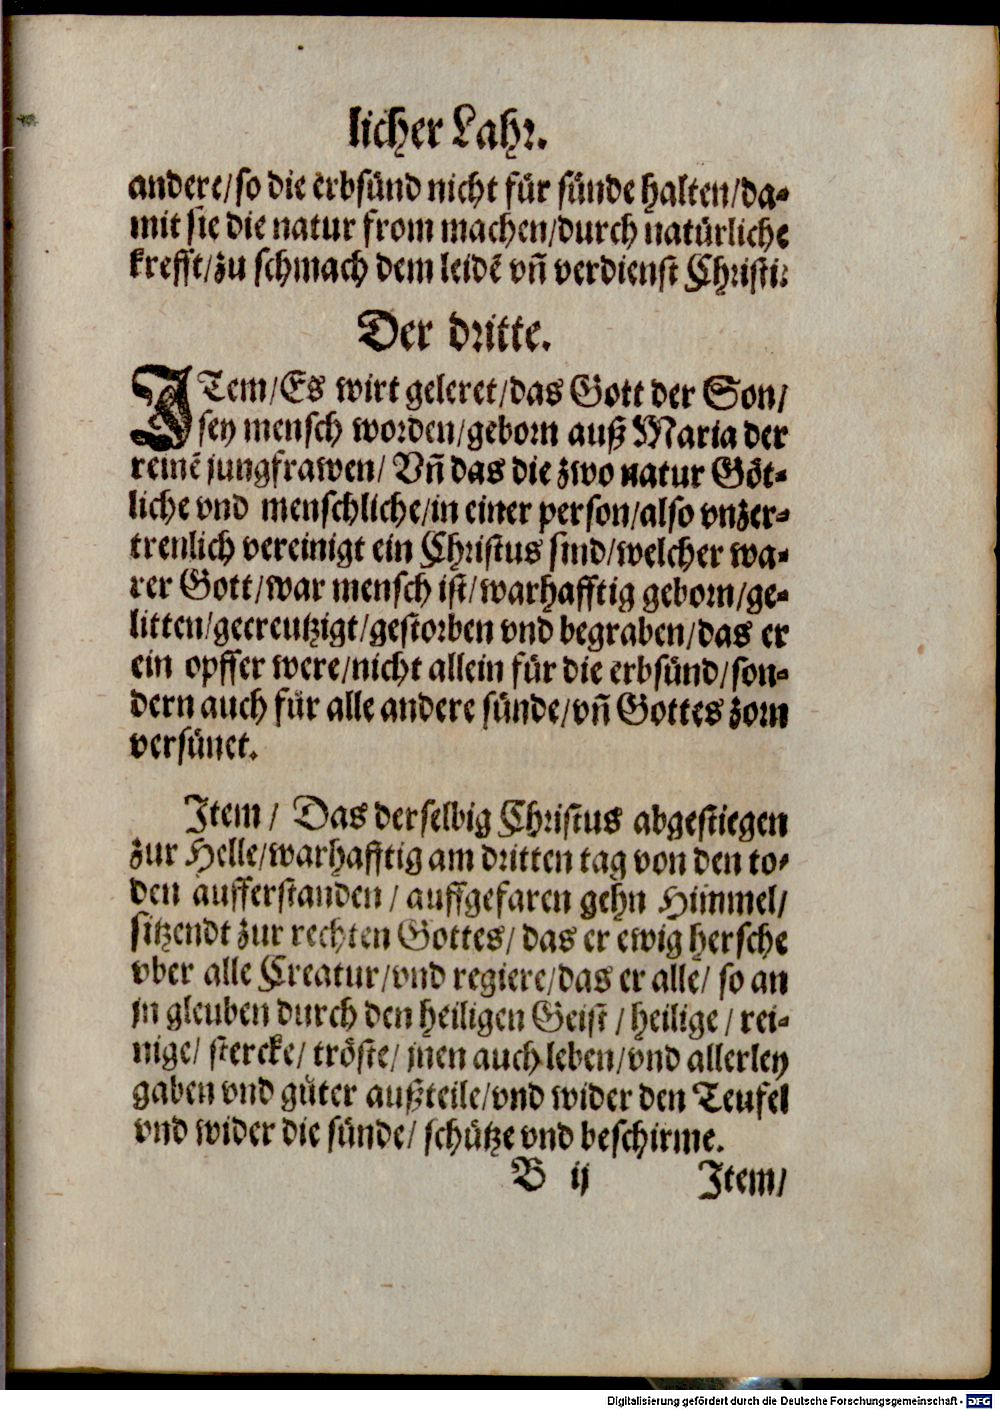 licher Lahr.
andere/so die erbsünd nicht für sünde halten/da-
mit sie die natur from machen/durch natürliche
krefft/zu schmach dem leidẽ vñ verdienst Christi:
Der dritte.
ITem/Es wirt geleret/das Gott der Son/
sey mensch worden/geborn auß Maria der
reinẽ jungfrawen/ Vñ das die zwo natur Göt-
liche vnd menschliche/in einer person/also vnzer-
trenlich vereinigt ein Christus sind/welcher wa-
rer Gott/war mensch ist/warhafftig geborn/ge-
litten/gecreutzigt/gestorben vnd begraben/das er
ein opffer were/nicht allein für die erbsünd/son-
dern auch für alle andere sünde/vñ Gottes zorn
versünet.
Item/ Das derselbig Christus abgestiegen
zur Helle/warhafftig am dritten tag von den to-
den aufferstanden/ auffgefaren gehn Himmel/
sitzendt zur rechten Gottes/ das er ewig hersche
vber alle Creatur/vnd regiere/das er alle/ so an
jn gleuben durch den heiligen Geist/ heilige/ rei-
nige/ stercke/ tröste/ jnen auch leben/vnd allerley
gaben vnd güter außteile/vnd wider den Teufel
vnd wider die sünde/ schütze vnd beschirme.
B ij Item/
Digitalisierung gefördert durch die Deutsche Forschungsgemeinschaft - DFG